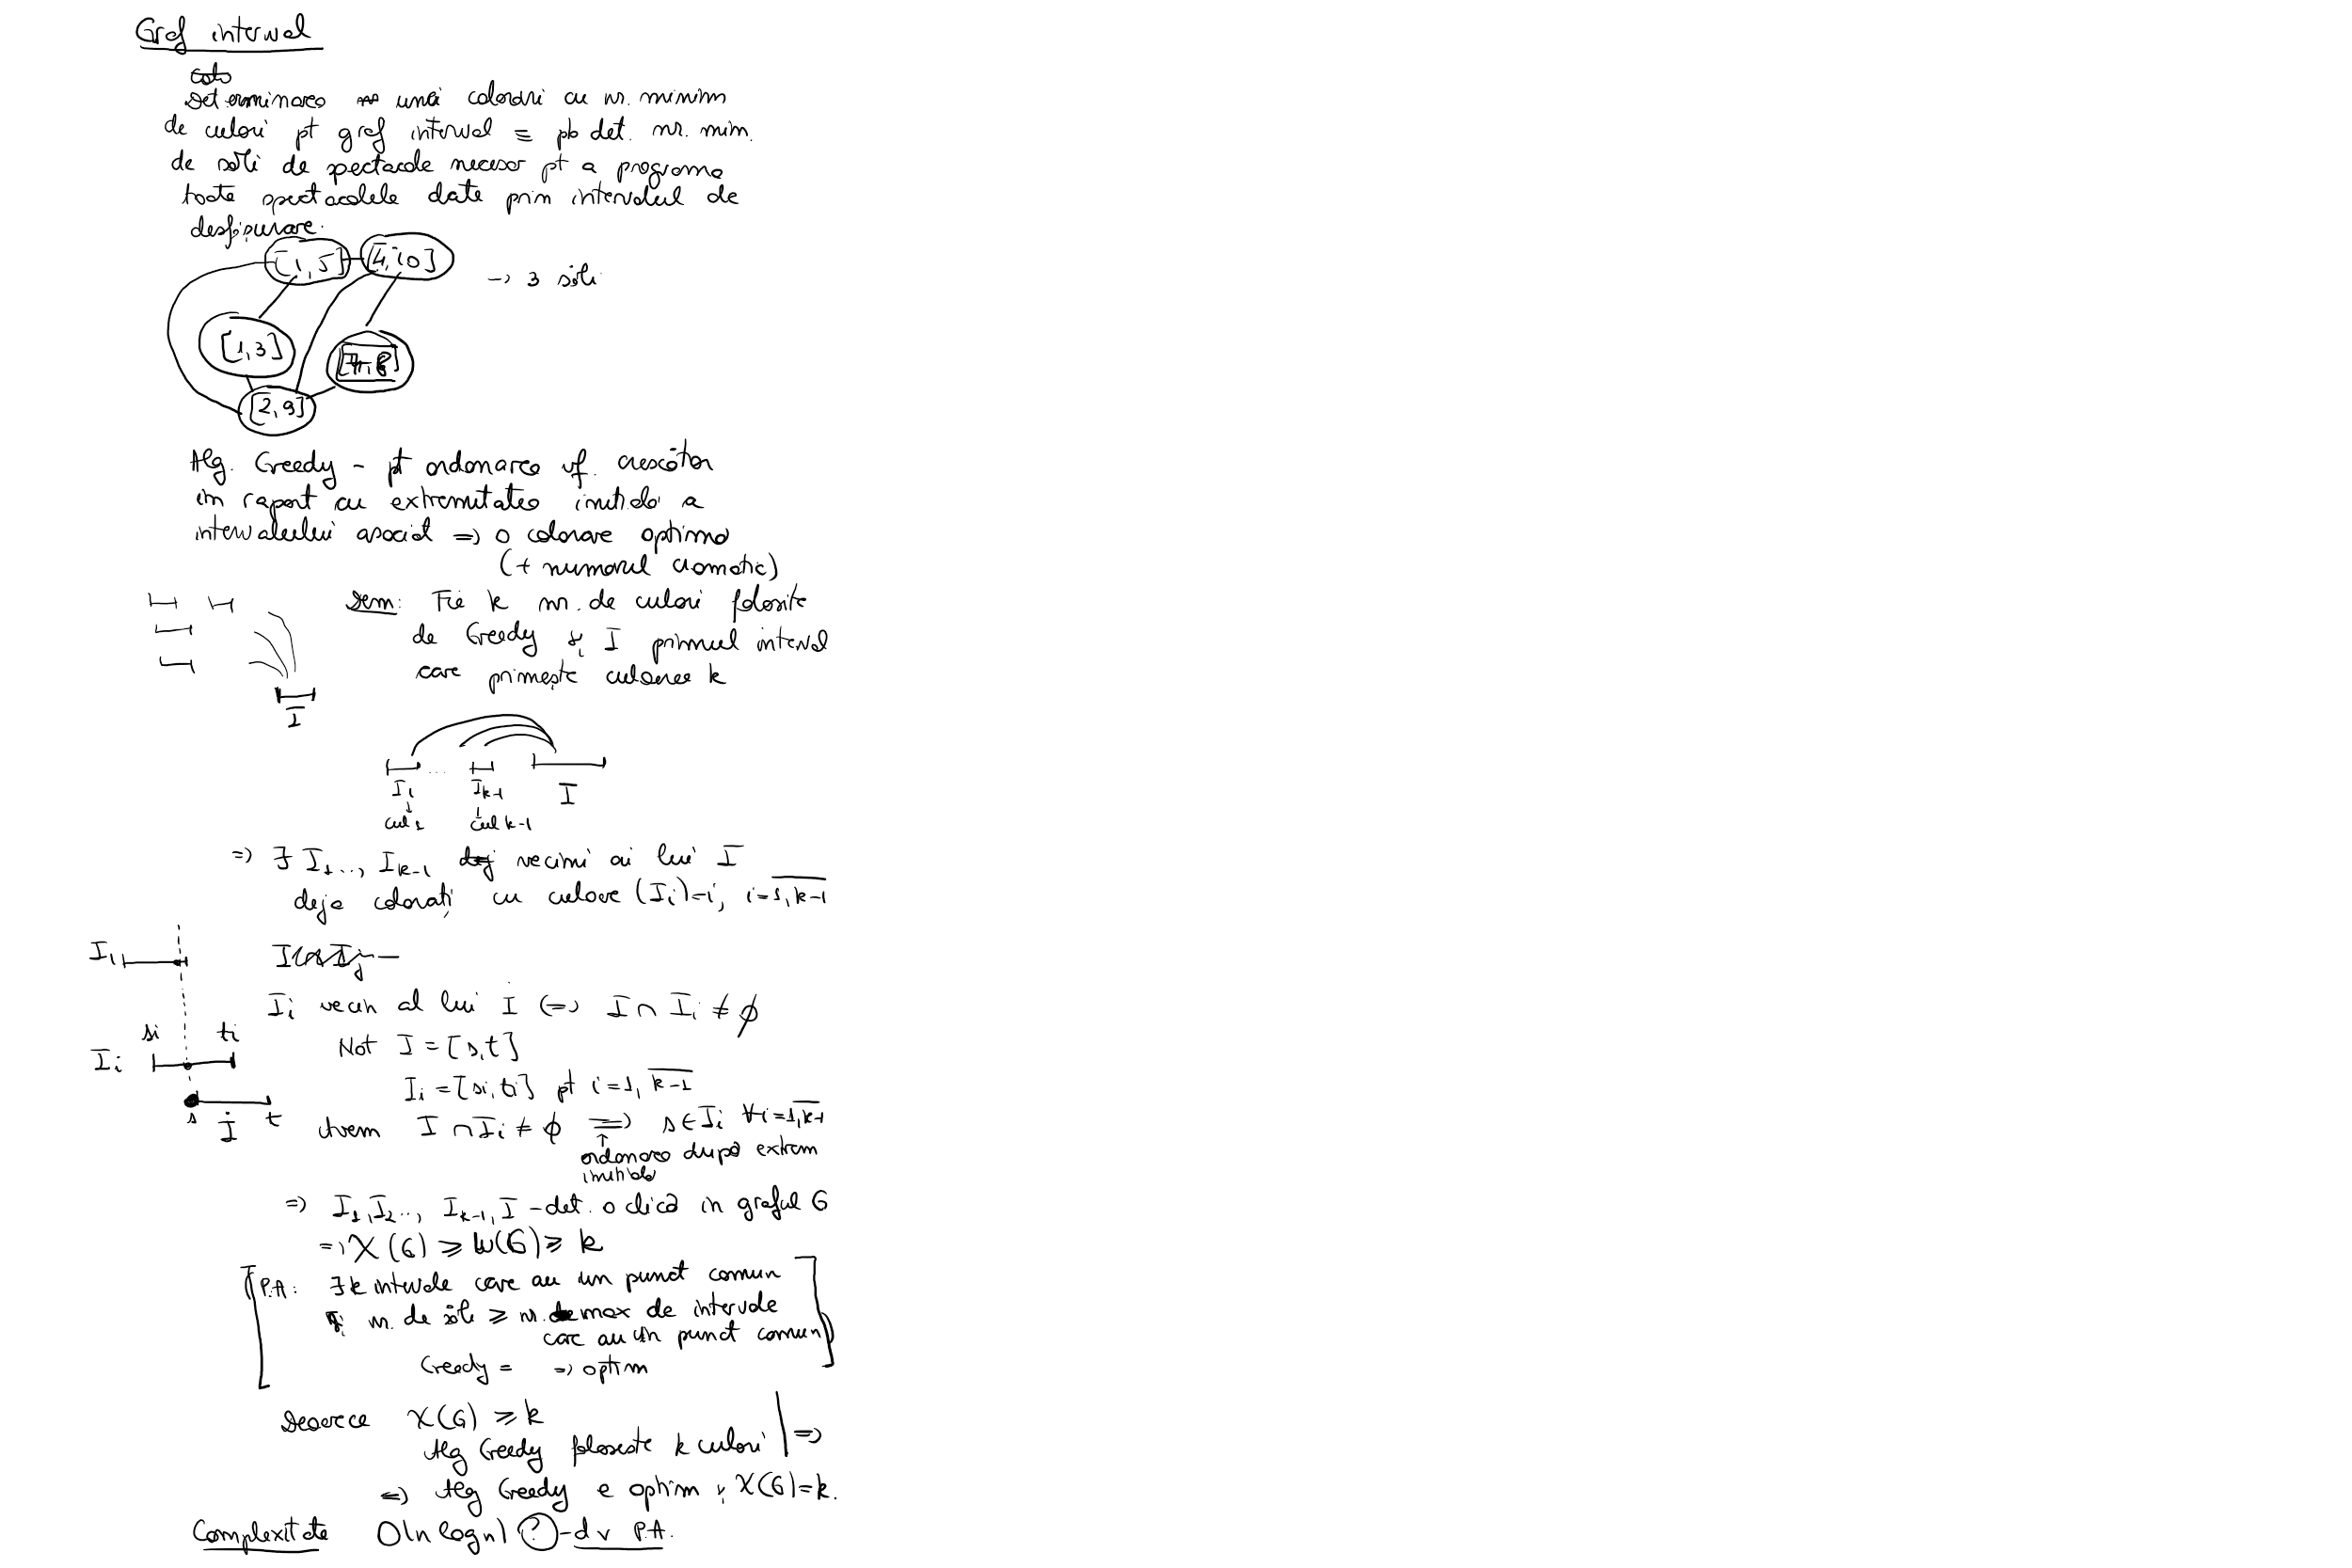 Graf interval
Determinarea unei colorări cu nr. minim
de culori pt graf interval ≡ pb det. nr. min.
de săli de spectacole necesar pt a programa
toate spectacolele date prin intervalul de
desfășurare.
[1,5] [4,10]
→ 3 săli
[1,3]
[2,9]
Alg. Greedy - pt ordonarea vf. crescător
în raport cu extremitatea inițială a
intervalului asociat => o colorare optimă
(+ numărul cromatic)
Dem: Fie k nr. de culori folosite
de Greedy și I primul interval
care primește culoarea k
I
I1 ... Ik-1 I
cul 1 cul k-1
=> ∃ I1..., Ik-1 vecini ai lui I
deja colorați cu culoare (Ii)=i, i=1,k-1
I1
Ii vecin al lui I <=> I ∩ Ii ≠ ϕ
si ti
Not I = [s,t]
Ii
Ii = [si, ti] pt i=1, k-1
s I t
Avem I ∩ Ii ≠ ϕ => s ∈ Ii ∀i=1,k-1
↑
ordonarea după extrem
inițială
=> I1, I2..., Ik-1, I - det. o clică în graful G
=> χ(G) ≥ ω(G) ≥ k
P.A: ∃ k intervale care au un punct comun
și nr. de săli ≥ nr. max de intervale
care au un punct comun
Greedy = => optim
Deoarece χ(G) ≥ k
Alg Greedy folosește k culori | =>
=> Alg Greedy e optim și χ(G)=k.
Complexitate O(n log n) ? - dv P.A.